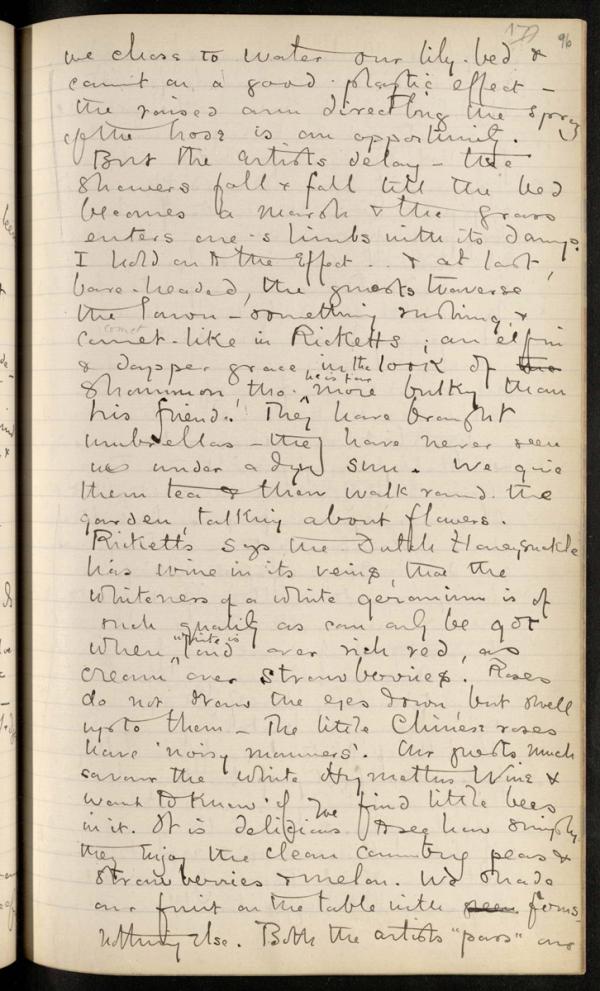 96
we chose to water our lily-bed &
count on a good plastic effect –
the raised arm directing the spray
of the hose is an opportunity.
But the artists delay – the
showers fall & fall till the bed
becomes a marsh & the grass
enters one's limbs with its damp.
I hold on to the effect .. & at last,
bare-headed, the guests traverse
the lawn – something rushing &
comet
comet-like in Ricketts; an elfin
& dapper grace in the look of
Shannon, tho' he is far more bulky than
his friend. They have brought
umbrellas – they have never seen
us under a dry sun. We give
them tea & then walk round the
garden, talking about flowers.
Ricketts says the Dutch Honeysuckle
has wine in its veins, that the
whiteness of a white geranium is of
such quality as can only be got
when "white is laid" over rich red, as
cream over strawberries. Roses
do not draw the eyes down, but swell
up to them – The little Chinese roses
have 'noisy manners'. Our guests much
savour the white Hymettus Wine &
want to know if we find little bees
in it. It is delicious to see how simply
they enjoy the clean country peas &
strawberries & melon. We shade
our fruit on the table with ferns –
nothing else. Both the artists "pass" our